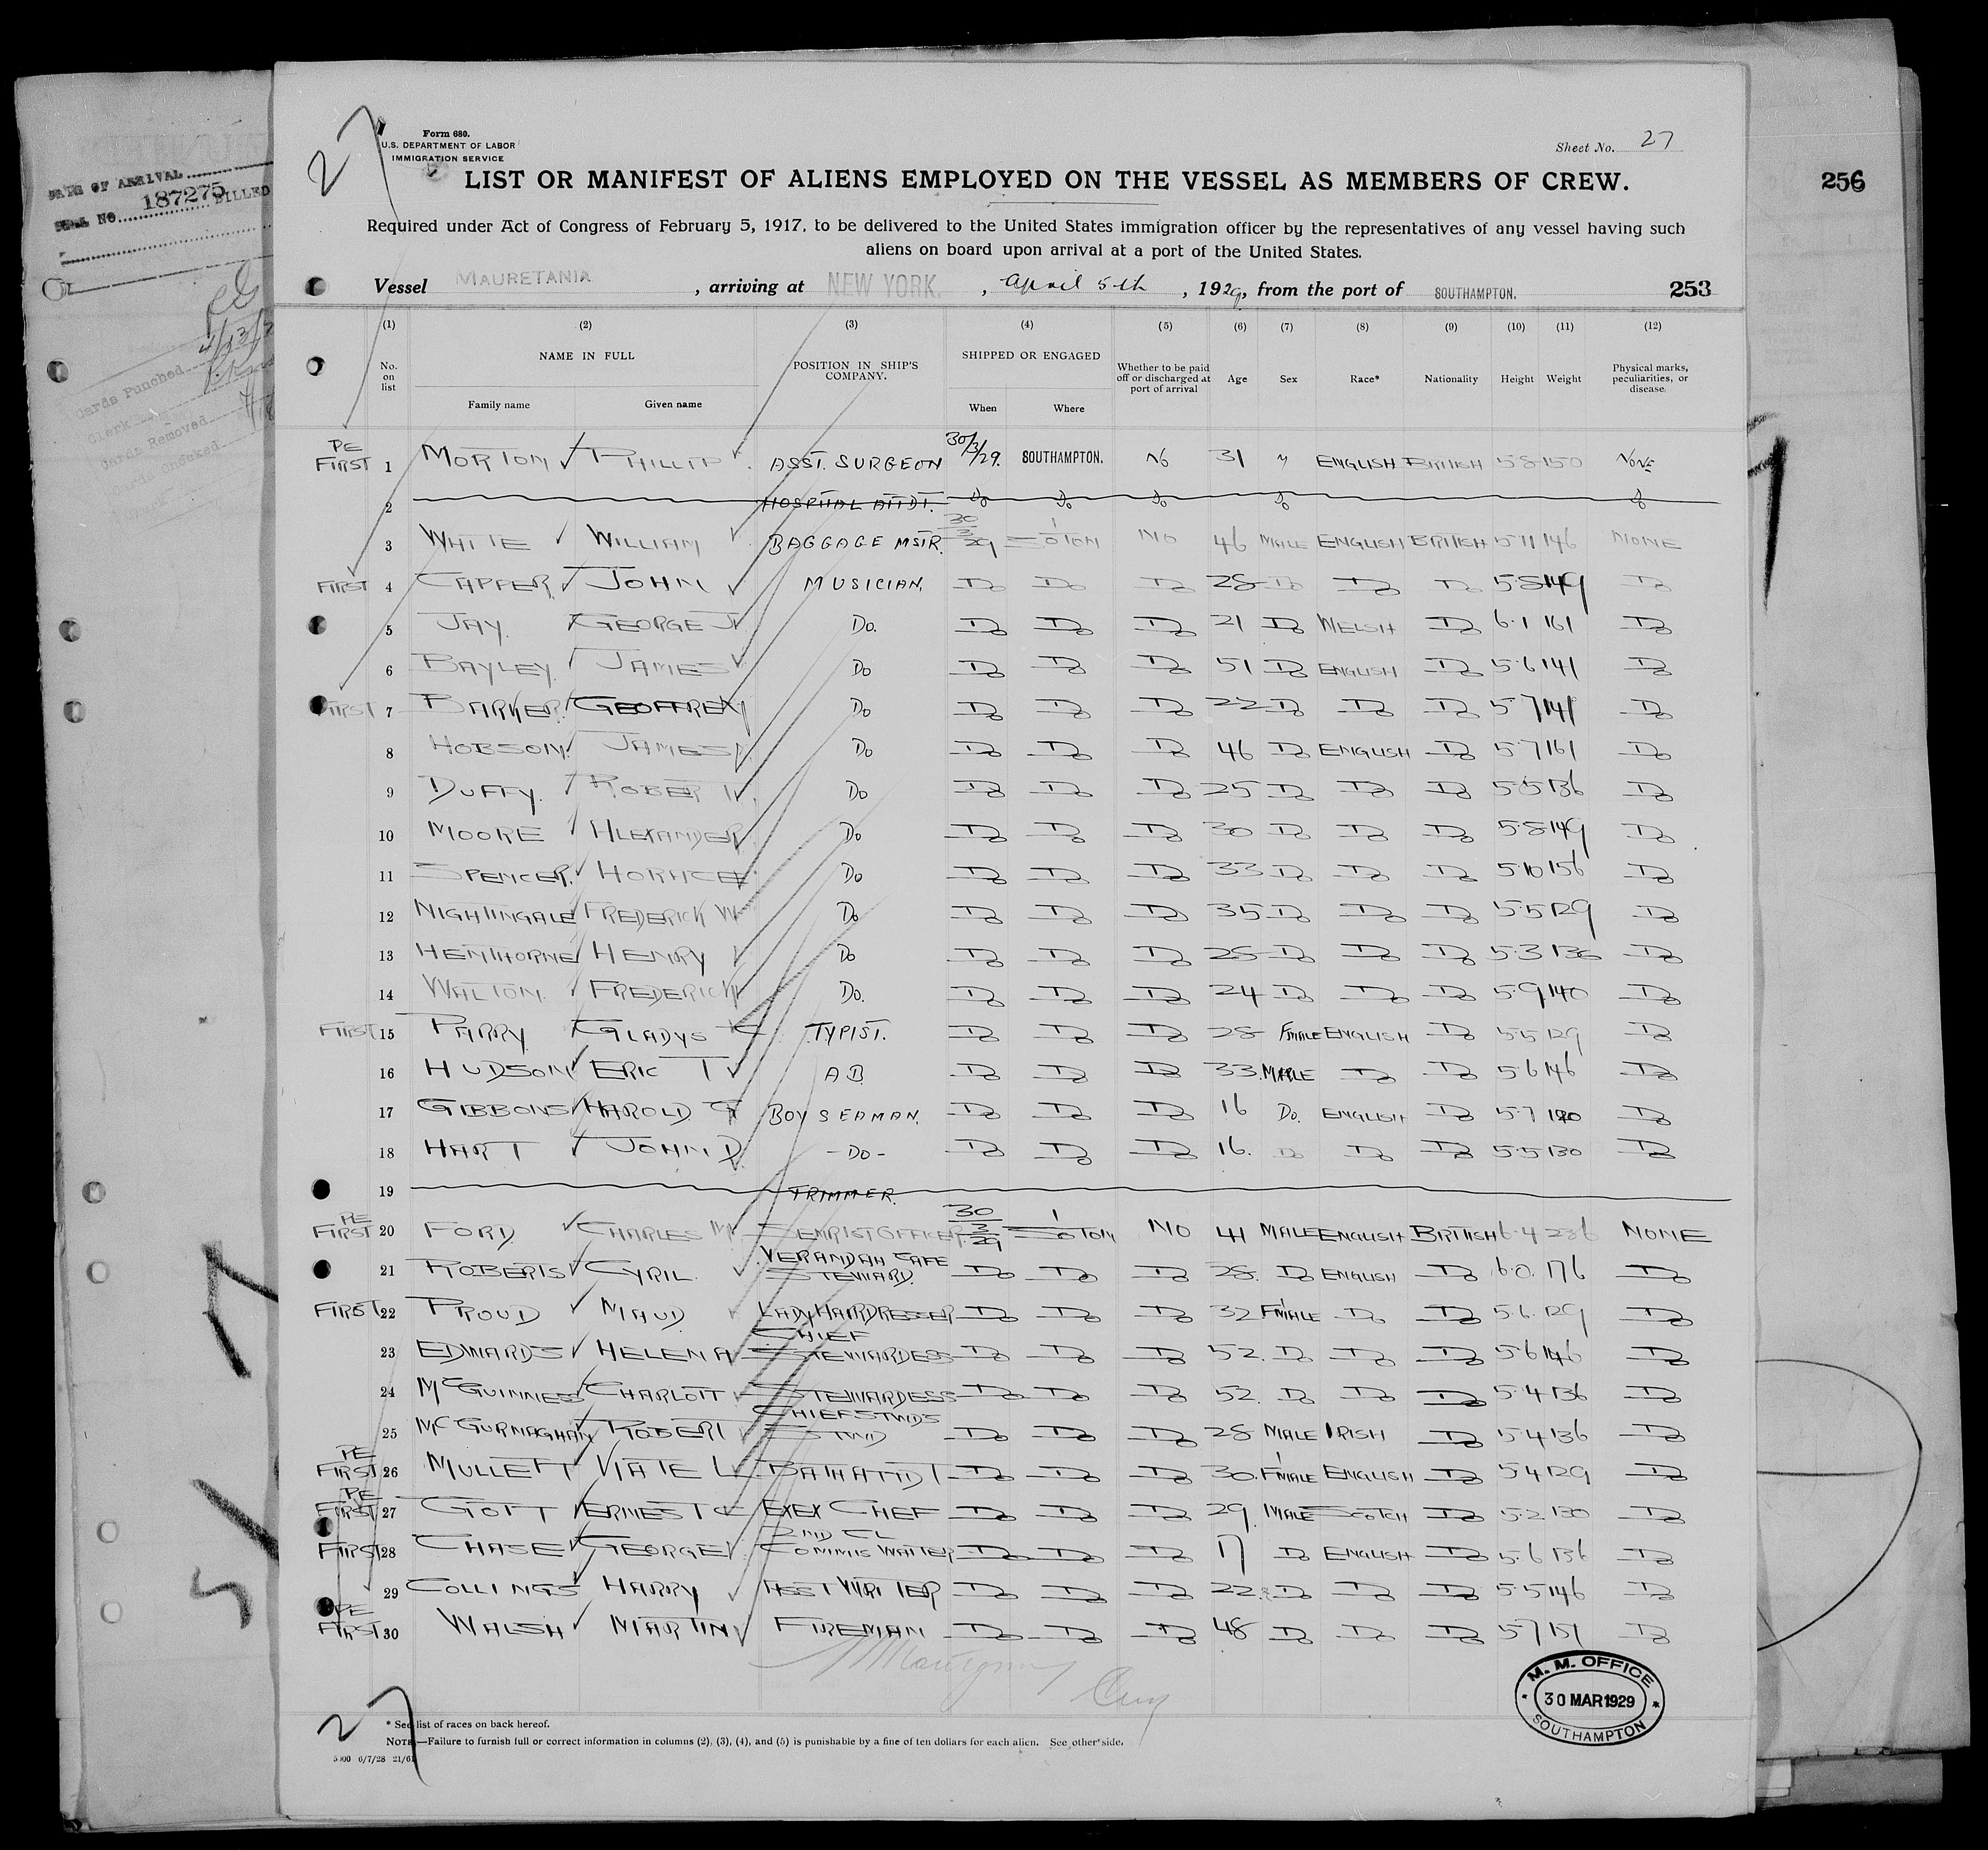 27
Form 680.
U.S. DEPARTMENT OF LABOR
IMMIGRATION SERVICE
Sheet No. 27
LIST OR MANIFEST OF ALIENS EMPLOYED ON THE VESSEL AS MEMBERS OF CREW.
Required under Act of Congress of February 5, 1917, to be delivered to the United States immigration officer by the representatives of any vessel having such
aliens on board upon arrival at a port of the United States.
Vessel MAURETANIA, arriving at NEW YORK., April 5th, 1929, from the port of SOUTHAMPTON. 253
256
DATE OF ARRIVAL
SERIAL NO. 187275 BILLED
Cards Punched 4/13/
Clerk
Cards Removed
Clerk
(1) (2) (3) (4) (5) (6) (7) (8) (9) (10) (11) (12)
No. on list NAME IN FULL POSITION IN SHIP'S COMPANY. SHIPPED OR ENGAGED Whether to be paid off or discharged at port of arrival Age Sex Race* Nationality Height Weight Physical marks, peculiarities, or disease.
Family name Given name When Where
PE FIRST 1 MORTON PHILLIP ASST. SURGEON 30/3/29. SOUTHAMPTON. NO 31 M ENGLISH BRITISH 5.8 150 NONE
2 HOSPITAL ATTDT. Do Do Do Do Do
3 WHITE WILLIAM BAGGAGE MSTR. 30/3/29 S'OTON NO 46 MALE ENGLISH BRITISH 5.11 146 NONE
FIRST 4 CAPPER JOHN MUSICIAN. Do Do Do 28 Do Do Do 5.8 149 Do
5 JAY. GEORGE J Do. Do Do Do 21 Do WELSH Do 6.1 161 Do
6 BAYLEY. JAMES Do Do Do Do 51 Do ENGLISH Do 5.6 141 Do
FIRST 7 BARKER. GEOFFREY Do Do Do Do 22 Do Do Do 5.7 141 Do
8 HOBSON. JAMES Do Do Do Do 46 Do ENGLISH Do 5.7 161 Do
9 DUFFY. ROBERT Do Do Do Do 25 Do Do Do 5.5 136 Do
10 MOORE ALEXANDER Do Do Do Do 30 Do Do Do 5.8 149 Do
11 SPENCER. HORACE Do Do Do Do 33 Do Do Do 5.10 156 Do
12 NIGHTINGALE FREDERICK W Do Do Do Do 35 Do Do Do 5.5 129 Do
13 HENTHORNE HENRY Do Do Do Do 28 Do Do Do 5.3 136 Do
14 WALTON. FREDERICK Do. Do Do Do 24 Do Do Do 5.9 140 Do
FIRST 15 PARRY GLADYS TYPIST. Do Do Do 28 FMALE ENGLISH Do 5.5 129 Do
16 HUDSON ERIC T A B. Do Do Do 33. MALE Do Do 5.6 146 Do
17 GIBBONS HAROLD G BOY SEAMAN. Do Do Do 16 Do. ENGLISH Do 5.7 Do
18 HART JOHN D. - DO - Do Do Do 16. Do Do Do 5.5 130 Do
19 TRIMMER.
PE FIRST 20 FORD CHARLES M SEN R 1ST OFFICER 30/3/29 S'OTON NO 41 MALE ENGLISH BRITISH 6.4 236 NONE
21 ROBERTS CYRIL. VERANDAH CAFE STEWARD. Do Do Do 28. Do ENGLISH Do 6.0. 176 Do
FIRST 22 PROUD MAUD LADY HAIRDRESSER Do Do Do 32 F'MALE Do Do 5.6. 129 Do
23 EDWARDS HELENA CHIEF STEWARDESS Do Do Do 52. Do Do Do 5.6 146 Do
24 McGUINNESS CHARLOTT STEWARDESS Do Do Do 52. Do Do Do 5.4 136 Do
25 McGURNAGHAN ROBERT CHIEF STWD'S STWD Do Do Do 28 MALE IRISH Do 5.4 136 Do
PE FIRST 26 MULLETT KATE L BATH ATTDT Do Do Do 30. F'MALE ENGLISH Do 5.4 129 Do
PE FIRST 27 GOTT ERNEST C EXEX CHEF Do Do Do 29. MALE SCOTCH Do 5.2 130 Do
FIRST 28 CHASE GEORGE 2ND CL COMMIS WAITER Do Do Do 17 Do ENGLISH Do 5.6 136 Do
29 COLLINGS HARRY ASST WAITER Do Do Do 22. Do Do Do 5.5 146 Do
PE FIRST 30 WALSH MARTIN FIREMAN Do Do Do 48 Do Do Do 5.7 151 Do
M. M. OFFICE
30 MAR 1929
SOUTHAMPTON
27
* See list of races on back hereof.
NOTE.—Failure to furnish full or correct information in columns (2), (3), (4), and (5) is punishable by a fine of ten dollars for each alien. See other side.
5000 6/7/28